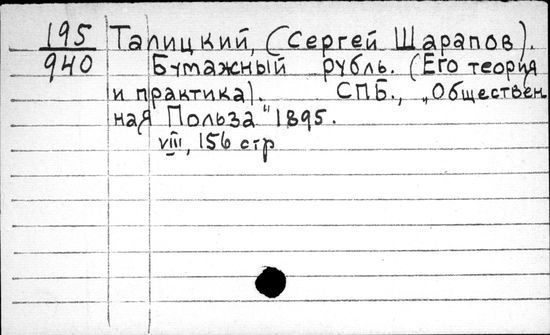 195 Талицкий, (Сергей Шарапов).
940 Бумажный рубль. (Его теория
и практика). СПБ., „Обществен
ная Польза" 1895.
VIII, 156 стр